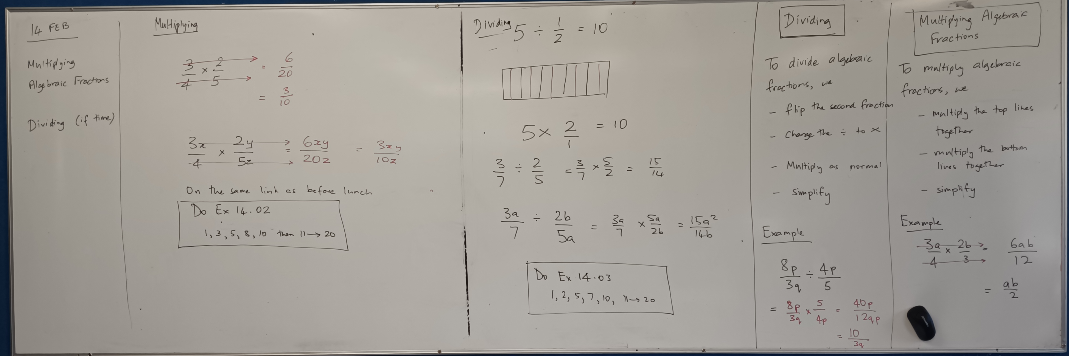 14 FEB
Multiplying
Algebraic Fractions
Dividing (if time)
Multiplying
3/4 × 2/5 = 6/20
= 3/10
3x/4 × 2y/5z = 6xy/20z = 3xy/10z
On the same link as before lunch
Do Ex 14.02
1, 3, 5, 8, 10 then 11→20
Dividing 5 ÷ 1/2 = 10
5 × 2/1 = 10
3/7 ÷ 2/5 = 3/7 × 5/2 = 15/14
3a/7 ÷ 2b/5a = 3a/7 × 5a/2b = 15a²/14b
Do Ex 14.03
1, 2, 5, 7, 10, 11→20
Dividing
To divide algebraic
fractions, we
- flip the second fraction
- Change the ÷ to ×
- Multiply as normal
- Simplify
Example
8p/3q ÷ 4p/5
= 8p/3q × 5/4p = 40p/12qp
= 10/3q
Multiplying Algebraic
Fractions
To multiply algebraic
fractions, we
- multiply the top lines
together
- multiply the bottom
lines together
- simplify
Example
3a/4 × 2b/3 = 6ab/12
= ab/2